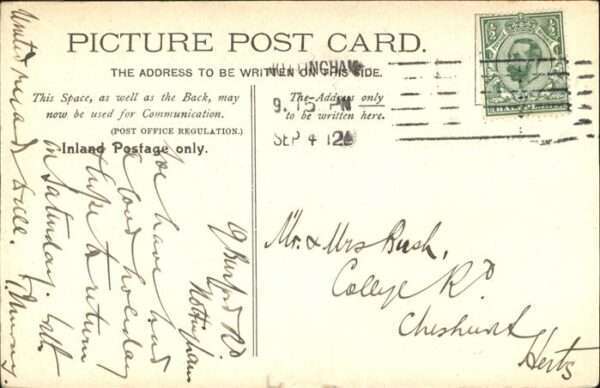 PICTURE POST CARD.
THE ADDRESS TO BE WRITTEN ON THIS SIDE.
This Space, as well as the Back, may
now be used for Communication.
(POST OFFICE REGULATION.)
Inland Postage only.
The Address only
to be written here.
NOTTINGHAM
9. 15 PM
SEP 4 12
Mr. & Mrs Bush,
College Rd
Cheshunt
Herts
9 Burford Rd.
Nottingham
We have had
a good holiday
& hope to return
on Saturday. With
United regards to all.